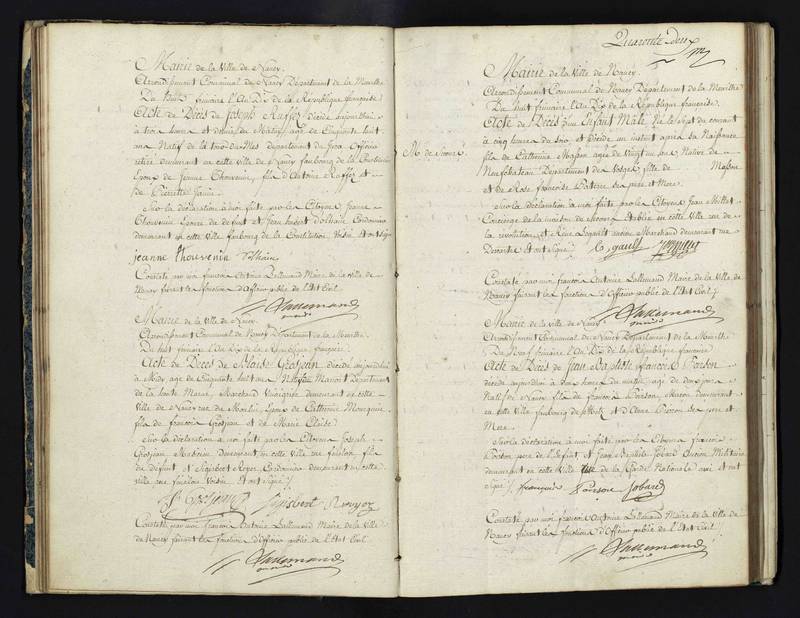 Mairie de la Ville de Nancy.
Arrondissement Communal de Nancy Département de la Meurthe
Du huit frimaire l'An Dix de la République française
Acte de Décès de Joseph Raffez décédé aujourd'hui
à trois heures et demie du Matin, agé de Cinquante huit
ans Natif de département du Jura Officier
retiré demeurant en cette Ville de Nancy faubourg de la Constitution
Epoux de Jeanne Thouvenin, fils d'Antoine Raffez et
de Pierrette
Sur la déclaration à moi faite par la Citoyne Jeanne
Thouvenin Epouse de défunt et Jean Cordonnier
demeurant en cette Ville faubourg de la Constitution, Voisin Et ont signé
jeanne thouvenin
Constaté par moi françois Antoine Lallemand Maire de la Ville de
Nancy faisant les fonctions d'Officier public de l'Etat Civil.
Lallemand
maire
Mairie de la Ville de Nancy.
Arrondissement Communal de Nancy Département de la Meurthe
Du huit frimaire l'An Dix de la République française
Acte de Décès de Blaise Grosjean décédé aujourd'hui
à Midy agé de Cinquante huit ans Département
de la haute Marne, Marchand Vinaigrier demeurant en cette
Ville de Nancy rue de Epoux de Catherine
fils de françois Grosjean et de Marie Claude
Sur la déclaration à moi faite par les Citoyens Joseph
Grosjean demeurant en cette Ville fils
du défunt, et Sigisbert Royer Cordonnier demeurant en cette
Ville Voisin. Et ont signé /.
Grosjean Sigisbert Royer
Constaté par moi françois Antoine Lallemand Maire de la Ville
de Nancy faisant les fonctions d'Officier public de l'Etat Civil
Lallemand
maire
Quarante deux
Mairie de la Ville de Nancy.
Arrondissement Communal de Nancy Département de la Meurthe
Du huit frimaire l'An Dix de la République française.
Acte de Décès d'un Enfant Male Né le Sept du courant
à cinq heures du soir et décédé un instant après sa Naissance
fils de Catherine agée de Vingt un ans Native de
Neufchateau Département des Vosges fille de
et de Rose françoise ses père et Mere.
Sur la déclaration à moi faite par les Citoyens Jean Millot
Concierge de la maison de Secours Etablie en cette Ville rue de
la révolution, et Marchand demeurant rue
Et ont signé
M. de Secours.
Constaté par moi françois Antoine Lallemand Maire de la Ville de
Nancy faisant les fonctions d'Officier public de l'Etat Civil /.
Lallemand
maire
Mairie de la Ville de Nancy.
Arrondissement Communal de Nancy Département de la Meurthe
Du Neuf frimaire l'An Dix de la République française
Acte de Décès de Jean Baptiste françois Poirson
décédé aujourd'hui à deux heures du matin agé de
Natif de Nancy fils de françois Poirson, Maçon demeurant
en cette Ville faubourg de Metz et d'Anne ses père et
Mere.
Sur la déclaration à moi faite par les Citoyens françois
Poirson pere de l'Enfant et Jean Baptiste Jobard Ancien Militaire
demeurant en cette Ville rue de la Garde Nationale ami et ont
signé /. françois Poirson Jobard
Constaté par moi françois Antoine Lallemand Maire de la Ville de
Nancy faisant les fonctions d'Officier public de l'Etat Civil /.
Lallemand
maire